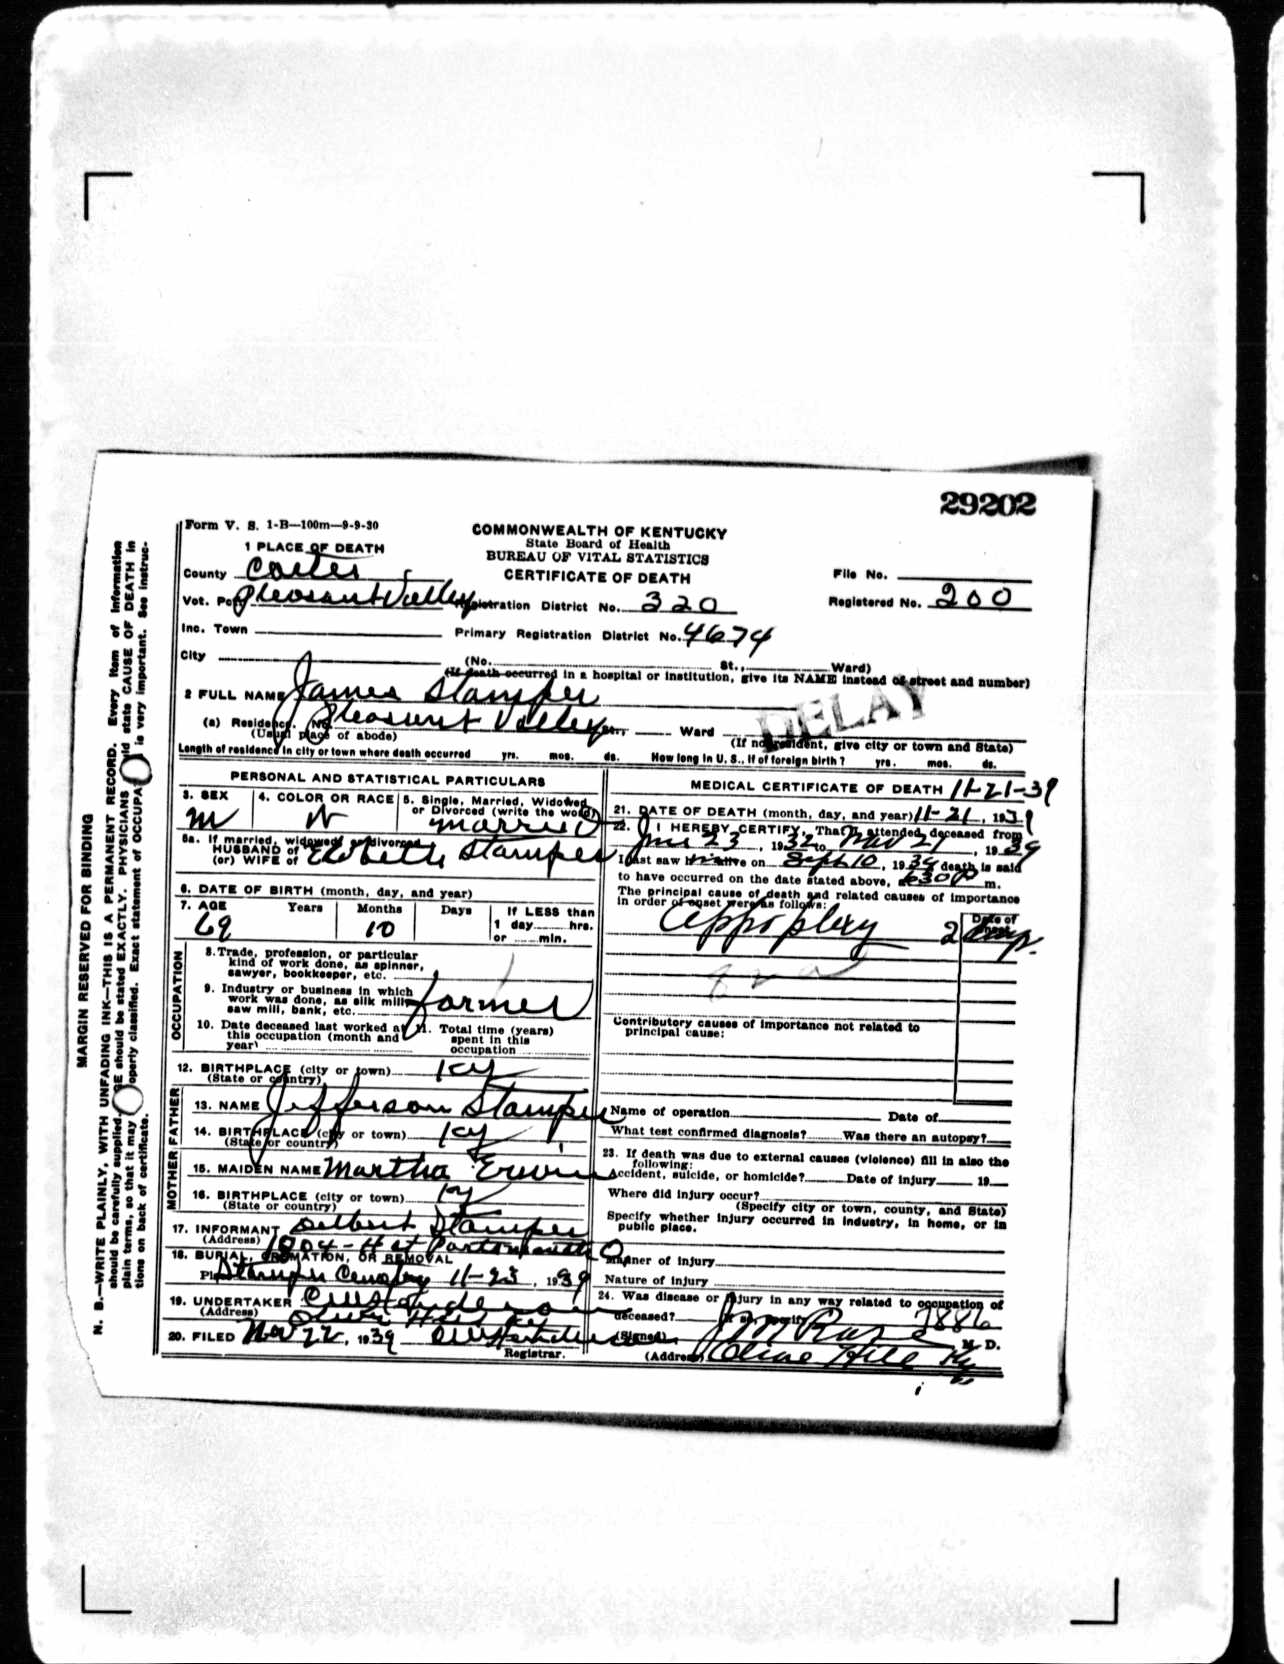 29202
Form V. S. 1-B—100m—9-9-30
COMMONWEALTH OF KENTUCKY
State Board of Health
BUREAU OF VITAL STATISTICS
CERTIFICATE OF DEATH
1 PLACE OF DEATH
County Carter
File No.
Vot. Pct Pleasant Valley Registration District No. 320
Registered No. 200
Inc. Town
Primary Registration District No. 4674
City (No. St., Ward)
(If death occurred in a hospital or institution, give its NAME instead of street and number)
2 FULL NAME James Stamper
DELAY
(a) Residence. No. Pleasant Valley St., Ward
(Usual place of abode) (If nonresident, give city or town and State)
Length of residence in city or town where death occurred yrs. mos. ds. How long in U. S., if of foreign birth? yrs. mos. ds.
PERSONAL AND STATISTICAL PARTICULARS
3. SEX 4. COLOR OR RACE 5. Single, Married, Widowed, or Divorced (write the word)
M W married
5a. If married, widowed, or divorced
HUSBAND of
(or) WIFE of Stamper
6. DATE OF BIRTH (month, day, and year)
7. AGE Years Months Days If LESS than
69 10 1 day hrs.
or min.
OCCUPATION
8. Trade, profession, or particular
kind of work done, as spinner,
sawyer, bookkeeper, etc.
9. Industry or business in which
work was done, as silk mill,
saw mill, bank, etc. farmer
10. Date deceased last worked at
this occupation (month and
year)
11. Total time (years)
spent in this
occupation
12. BIRTHPLACE (city or town) Ky
(State or country)
FATHER
13. NAME Jefferson Stamper
14. BIRTHPLACE (city or town) Ky
(State or country)
MOTHER
15. MAIDEN NAME Martha Erwin
16. BIRTHPLACE (city or town) Ky
(State or country)
17. INFORMANT Delbert Stamper
(Address) 1804-4 st Portsmouth O
18. BURIAL, CREMATION, OR REMOVAL
Place Stamper Cemetery 11-23, 1939
19. UNDERTAKER
(Address) Olive Hill Ky
20. FILED Nov 22, 1939
Registrar.
MEDICAL CERTIFICATE OF DEATH 11-21-39
21. DATE OF DEATH (month, day, and year) 11-21, 1939
22. I HEREBY CERTIFY, That I attended deceased from
23, 1932 to Nov 21, 1939
I last saw him alive on Sept 10, 1939 death is said
to have occurred on the date stated above, at 630 P m.
The principal cause of death and related causes of importance
in order of onset were as follows:
Date of
onset
Appoplexy 2
82a
Contributory causes of importance not related to
principal cause:
Name of operation Date of
What test confirmed diagnosis? Was there an autopsy?
23. If death was due to external causes (violence) fill in also the
following:
Accident, suicide, or homicide? Date of injury 19
Where did injury occur?
(Specify city or town, county, and State)
Specify whether injury occurred in industry, in home, or in
public place.
Manner of injury
Nature of injury
24. Was disease or injury in any way related to occupation of
deceased? If so, specify 7886
(Signed) J M M. D.
(Address) Olive Hill Ky
MARGIN RESERVED FOR BINDING
N. B.—WRITE PLAINLY, WITH UNFADING INK—THIS IS A PERMANENT RECORD. Every item of information
should be carefully supplied. AGE should be stated EXACTLY. PHYSICIANS should state CAUSE OF DEATH in
plain terms, so that it may be properly classified. Exact statement of OCCUPATION is very important. See instruc-
tions on back of certificate.